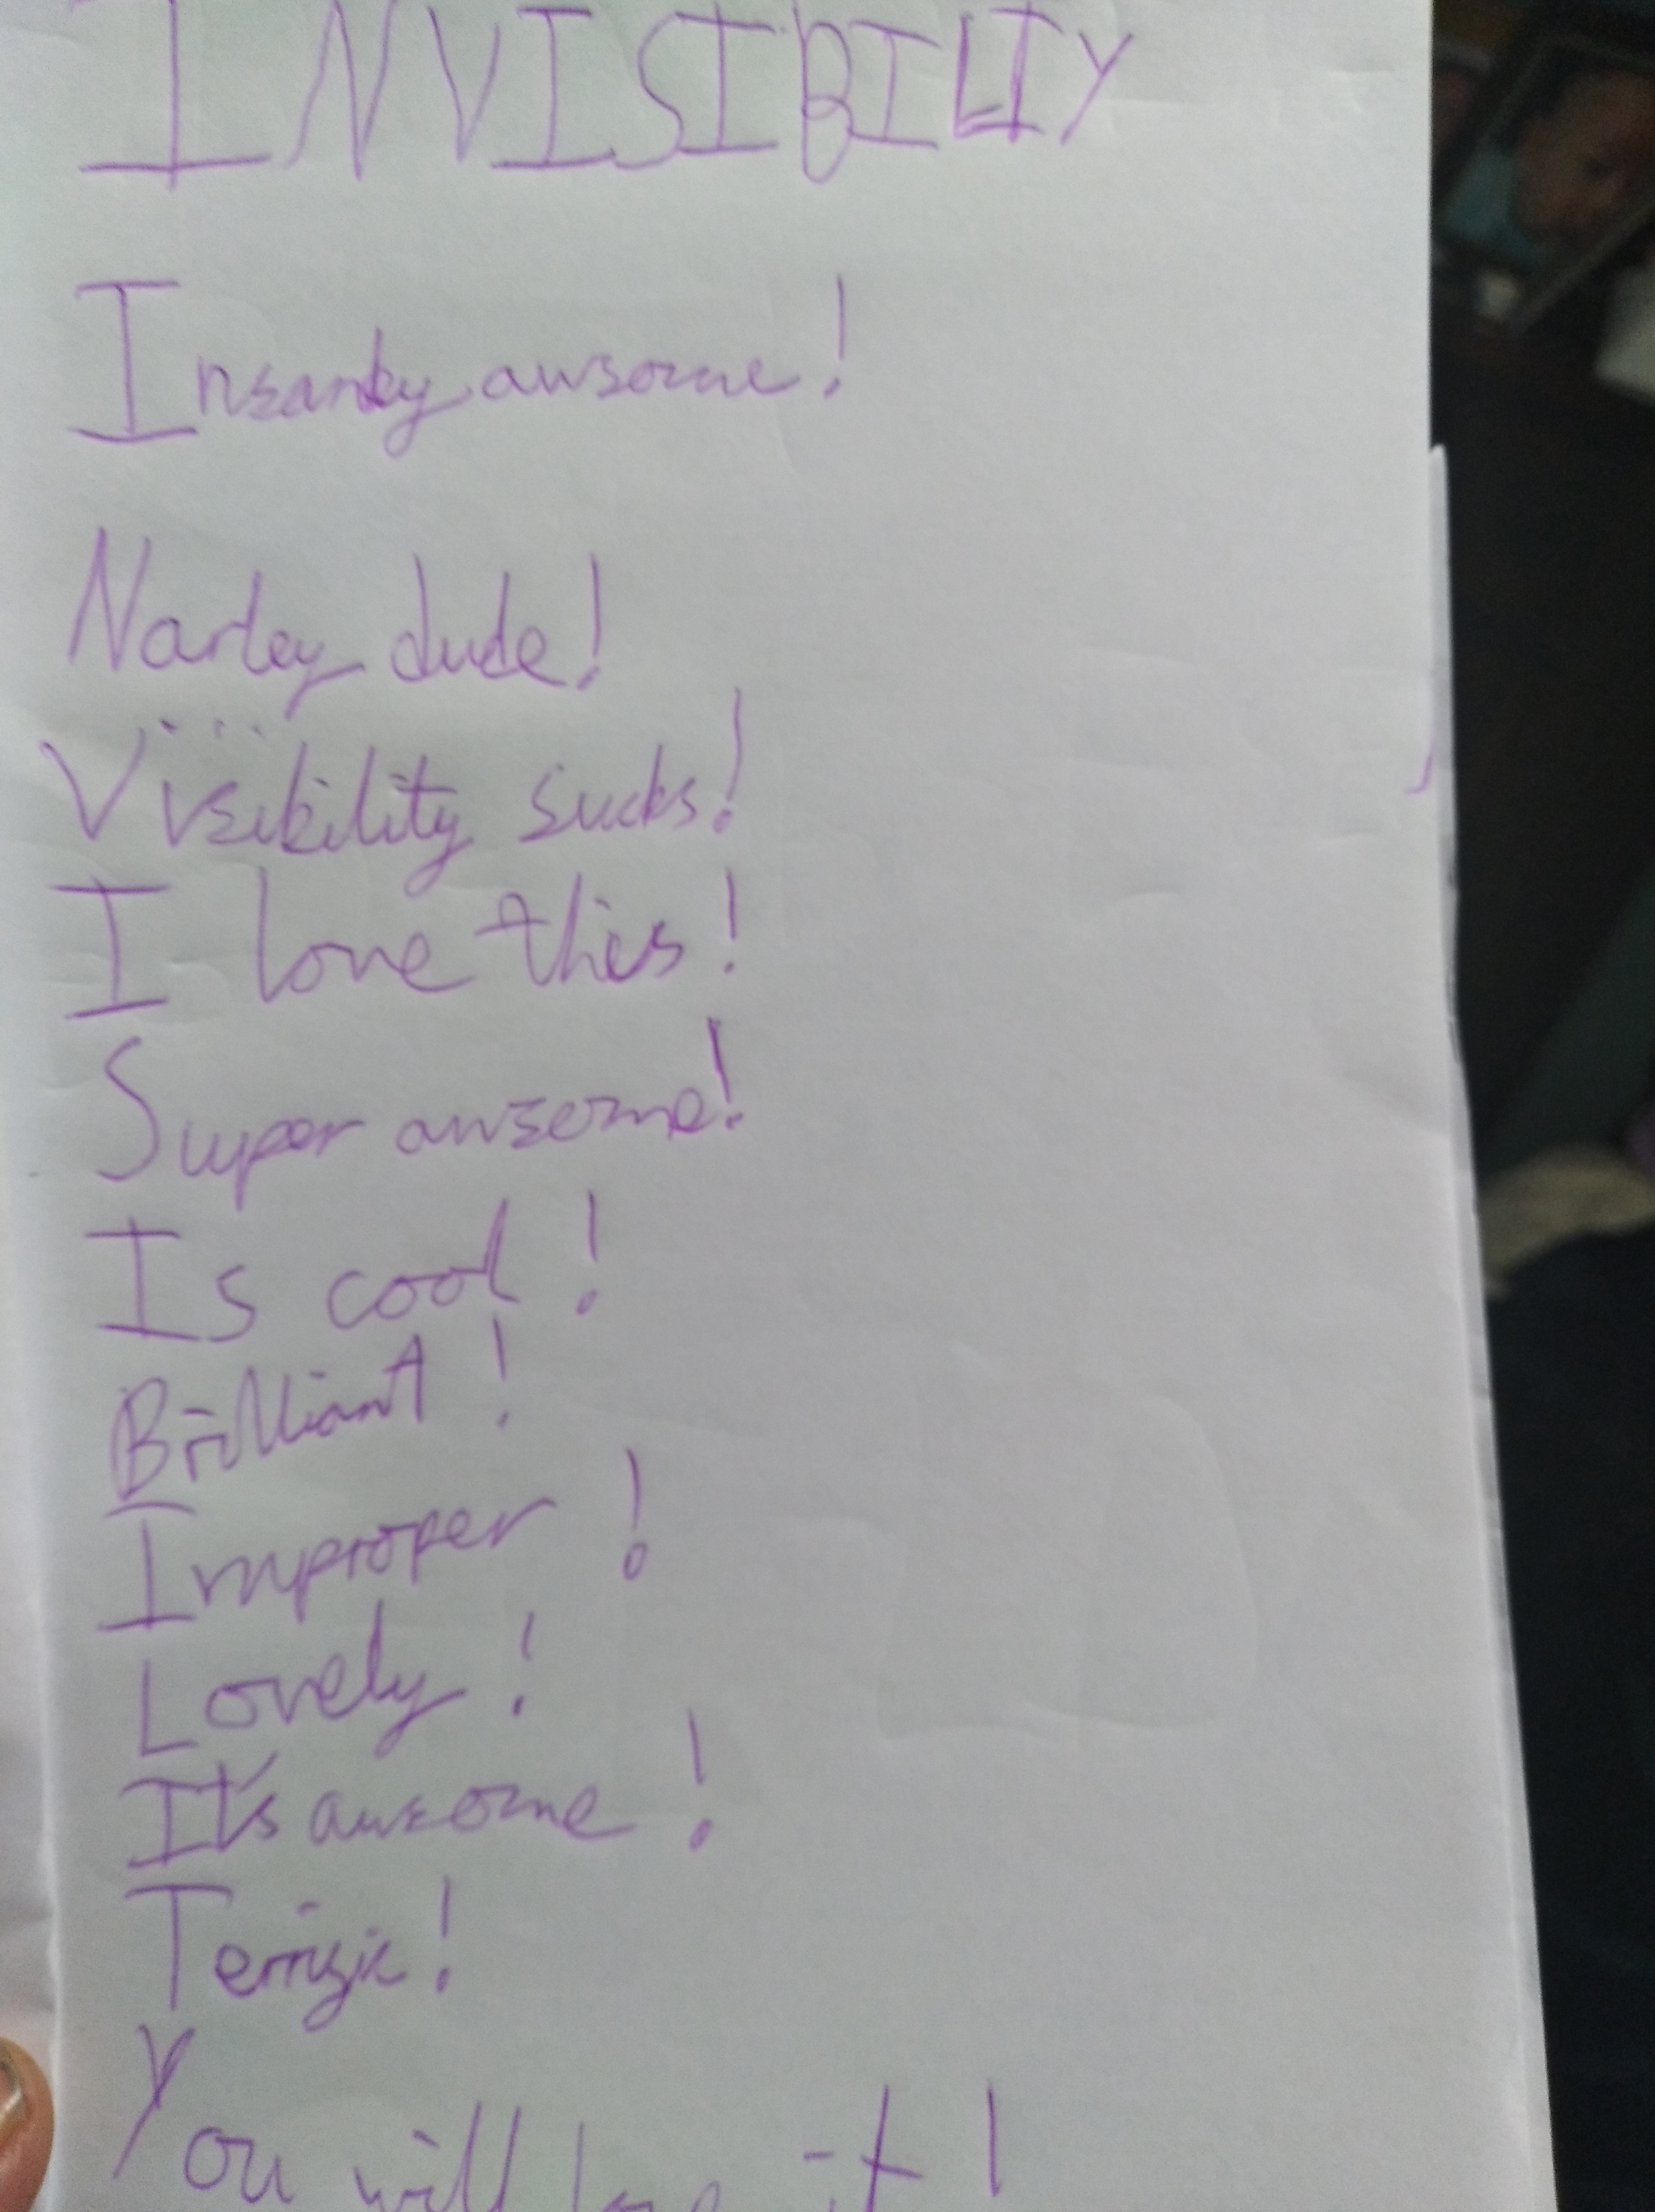 INVISIBILITY
Insanley awsome!
Narley dude!
Visibility sucks!
I love this!
Super awsome!
Is cool!
Brilliant!
Improper!
Lovely!
It's awsome!
Terrific!
You will love it!